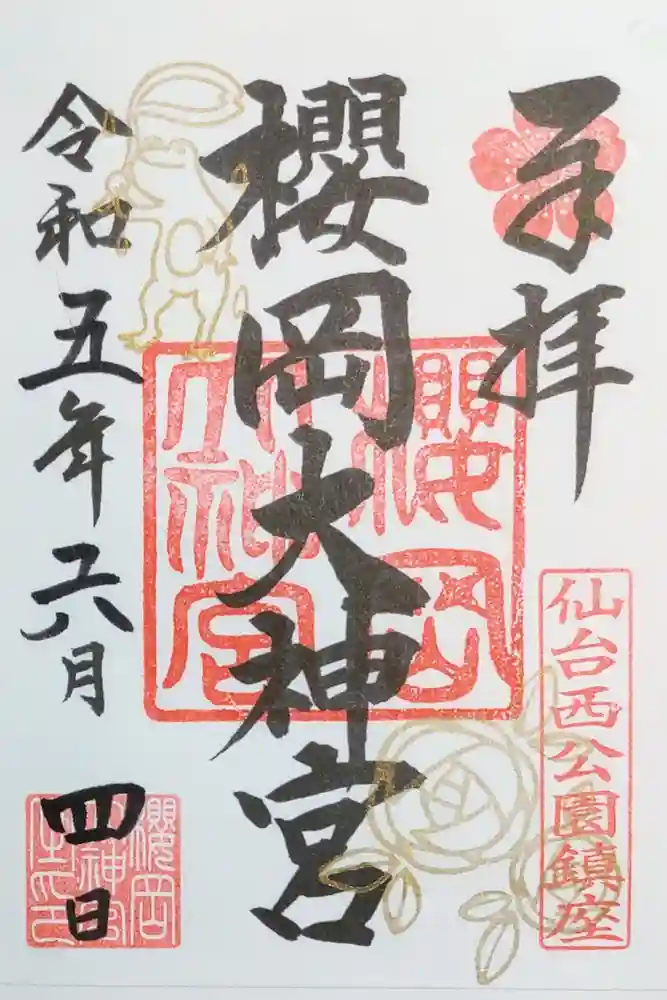 奉拝
仙台西公園鎮座
櫻岡大神宮
櫻岡大神宮
令和五年六月四日